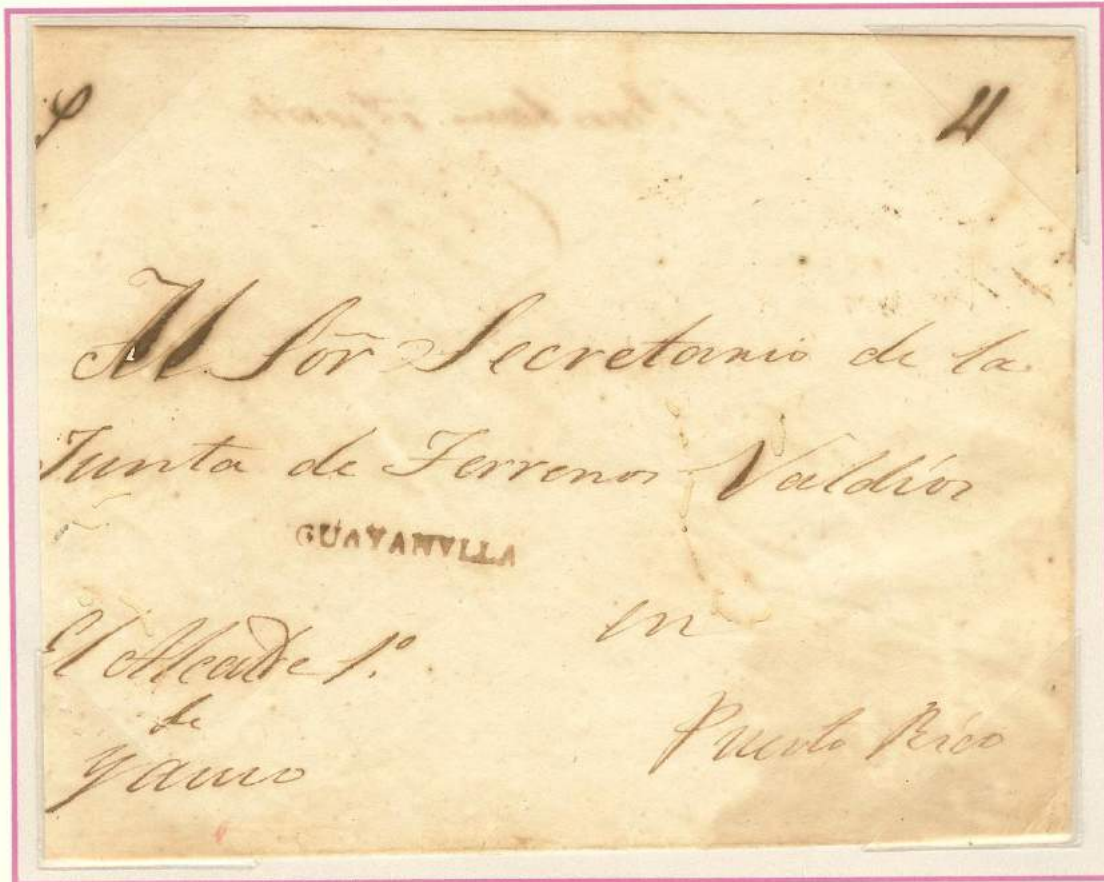 4
Al Sor̃ Secretario de la
Junta de Terrenos Valdíos
GUAYANVLLA
El Alcalde 1.º
de
Yauco
en
Puerto Rico